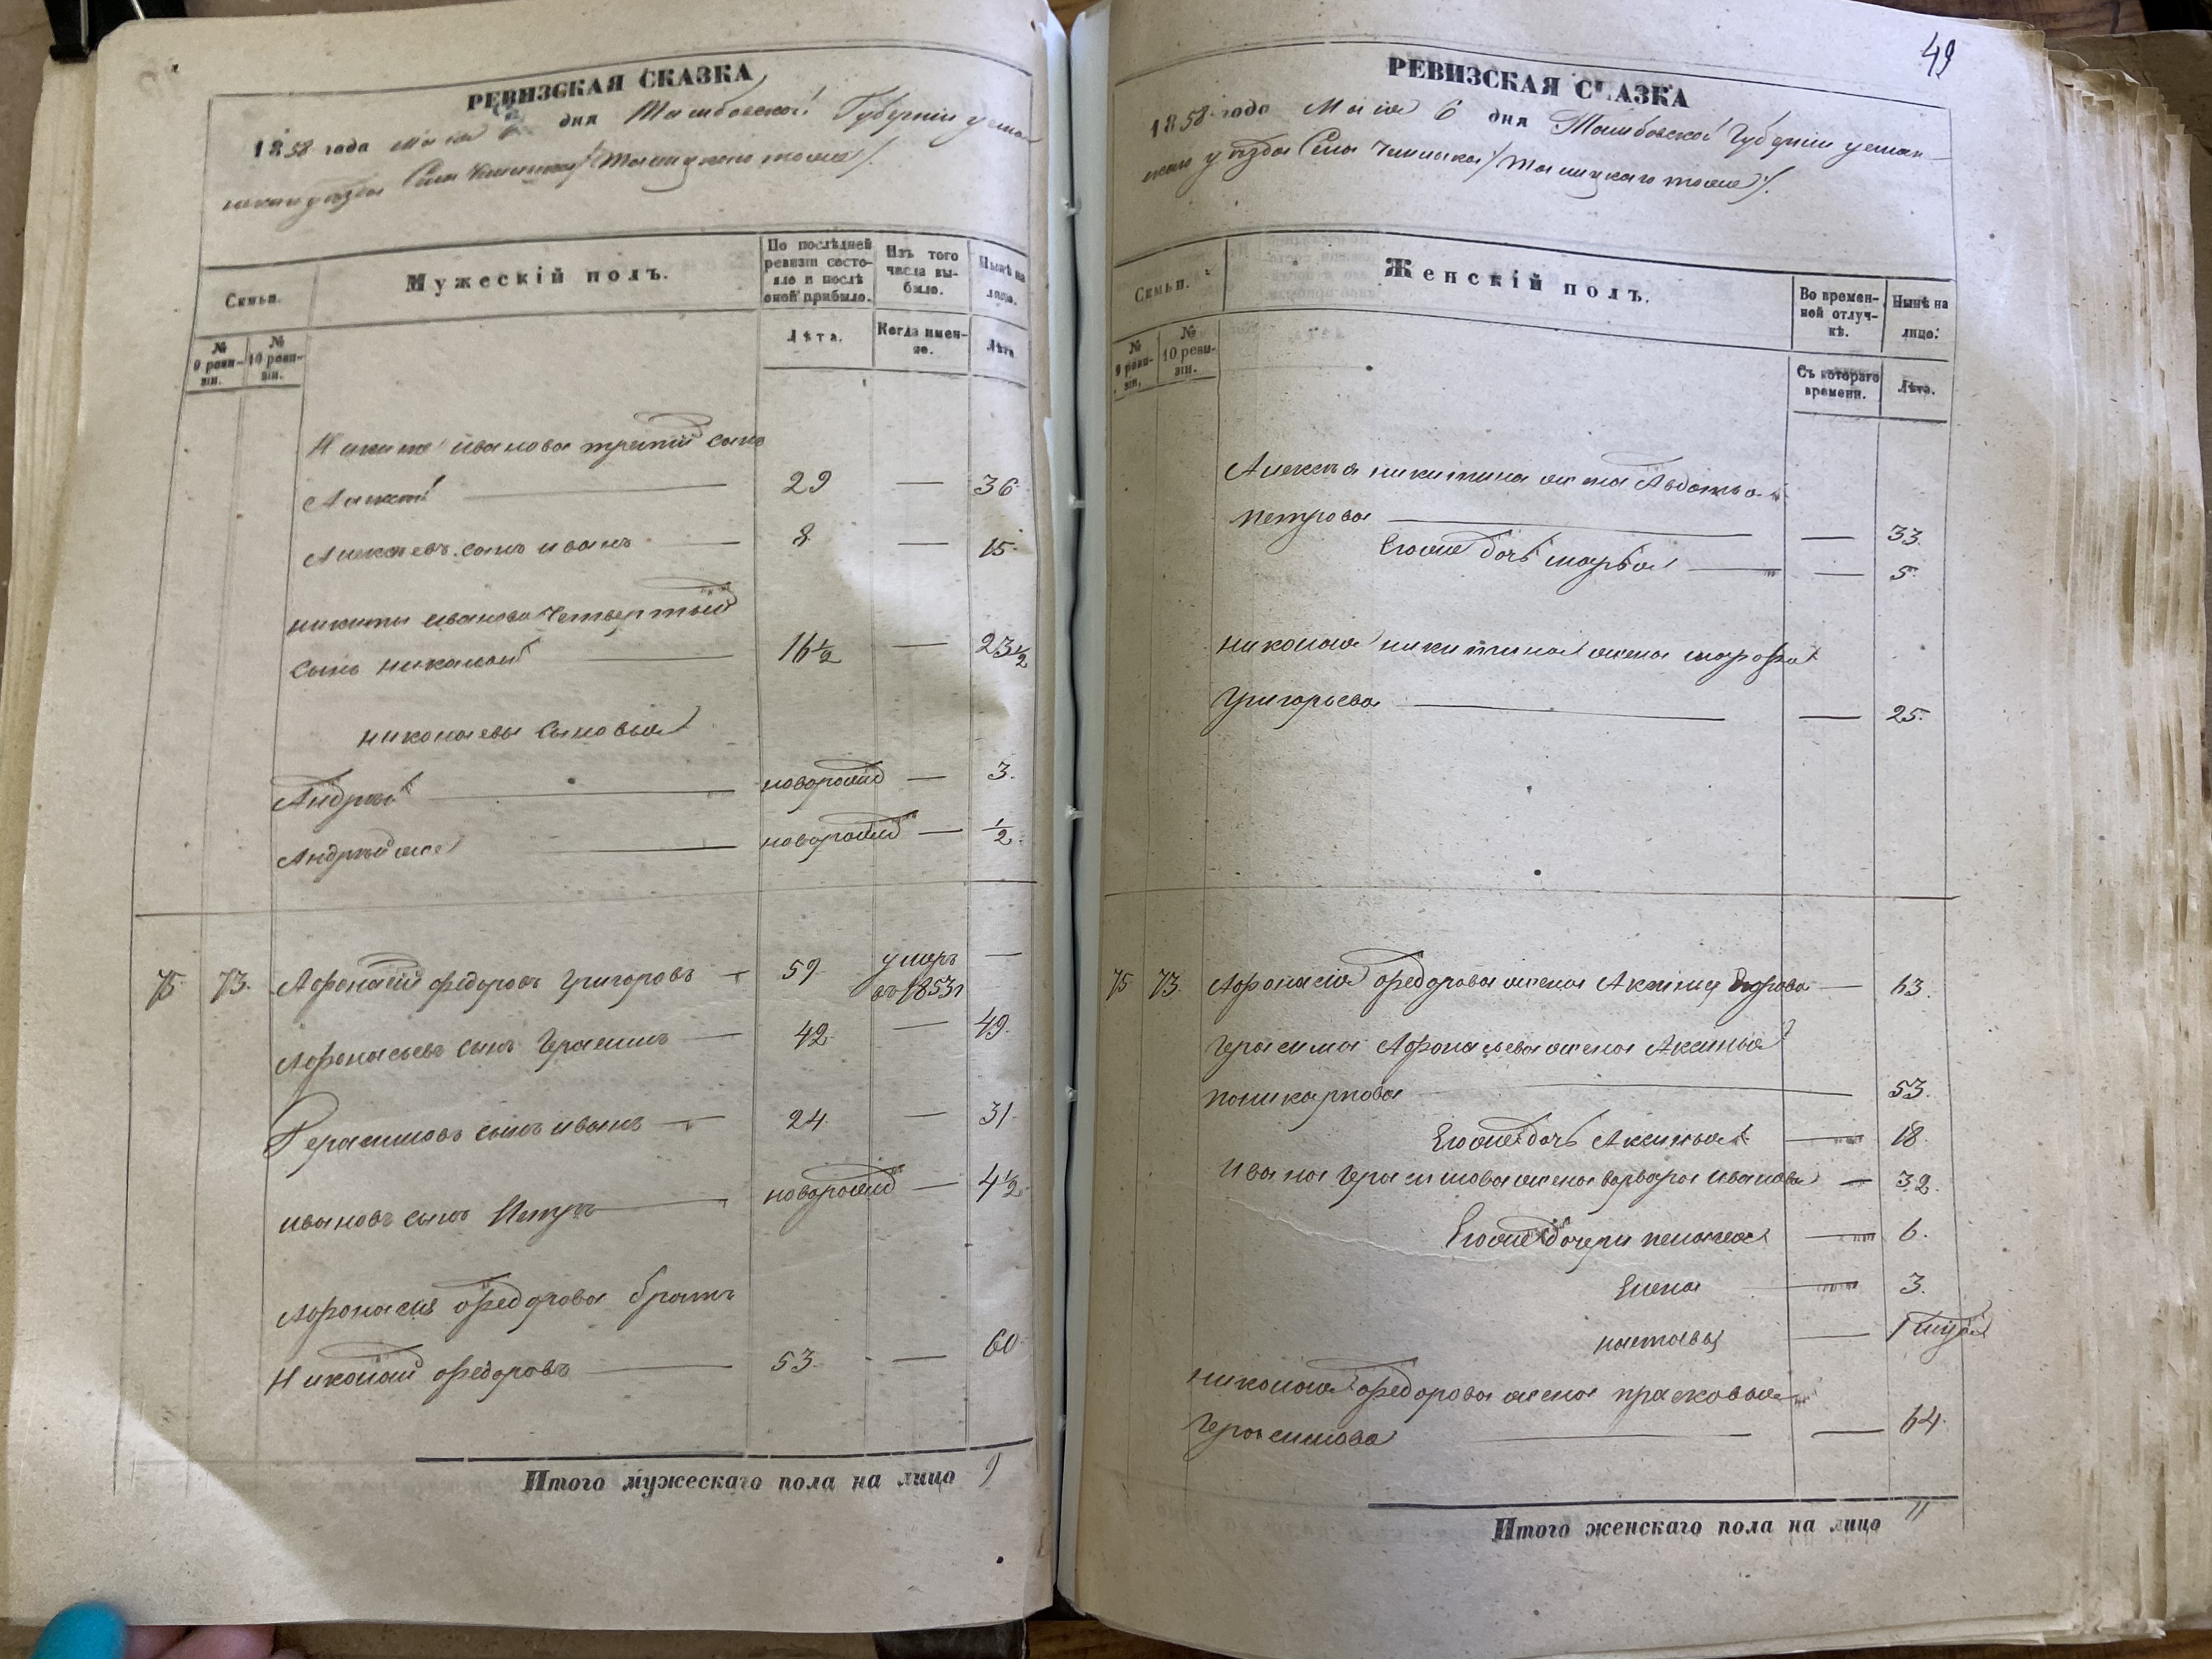 РЕВИЗСКАЯ СКАЗКА
1858 года Мая 6 дня Тамбовской Губернии усман
скаго уезда Села
Семьи.
Мужескій полъ.
По последней ревизіи состояло и после оной прибыло.
Изъ того числа выбыло.
Ныне на лицо.
№ 9 ревизіи.
№ 10 ревизіи.
Лѣта.
Когда именно.
Лѣта.
Никиты иванова третий сынъ
Алексей 29 — 36
Алексеевъ сынъ иванъ 8 — 15
никиты иванова четвертый
сынъ николай 16½ — 23½
николаевы сыновья
Андрей новорожд — 3.
Андрей же новорожд — ½
75 73. Афонасий федоровъ григоровъ 59 умеръ —
въ 1853 г
Афонасьевъ сынъ Герасимъ 42 — 49.
Герасимовъ сынъ иванъ 24 — 31.
ивановъ сынъ Петръ новорожд — 4½
Афонасия федорова братъ
Николай федоровъ 53. — 60
Итого мужескаго пола на лицо 9
49
РЕВИЗСКАЯ СКАЗКА
1858 года Мая 6 дня Тамбовской Губернии усман
скаго уезда Села
Семьи.
Женскій полъ.
Во временной отлучкѣ.
Нынѣ на лицо.
№ 9 ревизіи.
№ 10 ревизіи.
Съ котораго времени.
Лѣта.
Алексея никитина жена Авдотья
петрова — 33.
Егоже дочь марья — 5
николая никитина жена марфа
григорьева — 25.
75 73. Афонасия федорова жена Аксинья — 63.
герасима Афонасьева жена Аксинья
поликарпова 53.
Егоже дочь Аксинья — 18.
ивана герасимова жена варвара иванова — 32.
Егоже дочери пелагея — 6.
Елена — 3.
наталья —
николая федорова жена прасковья
герасимова — 64.
Итого женскаго пола на лицо 11